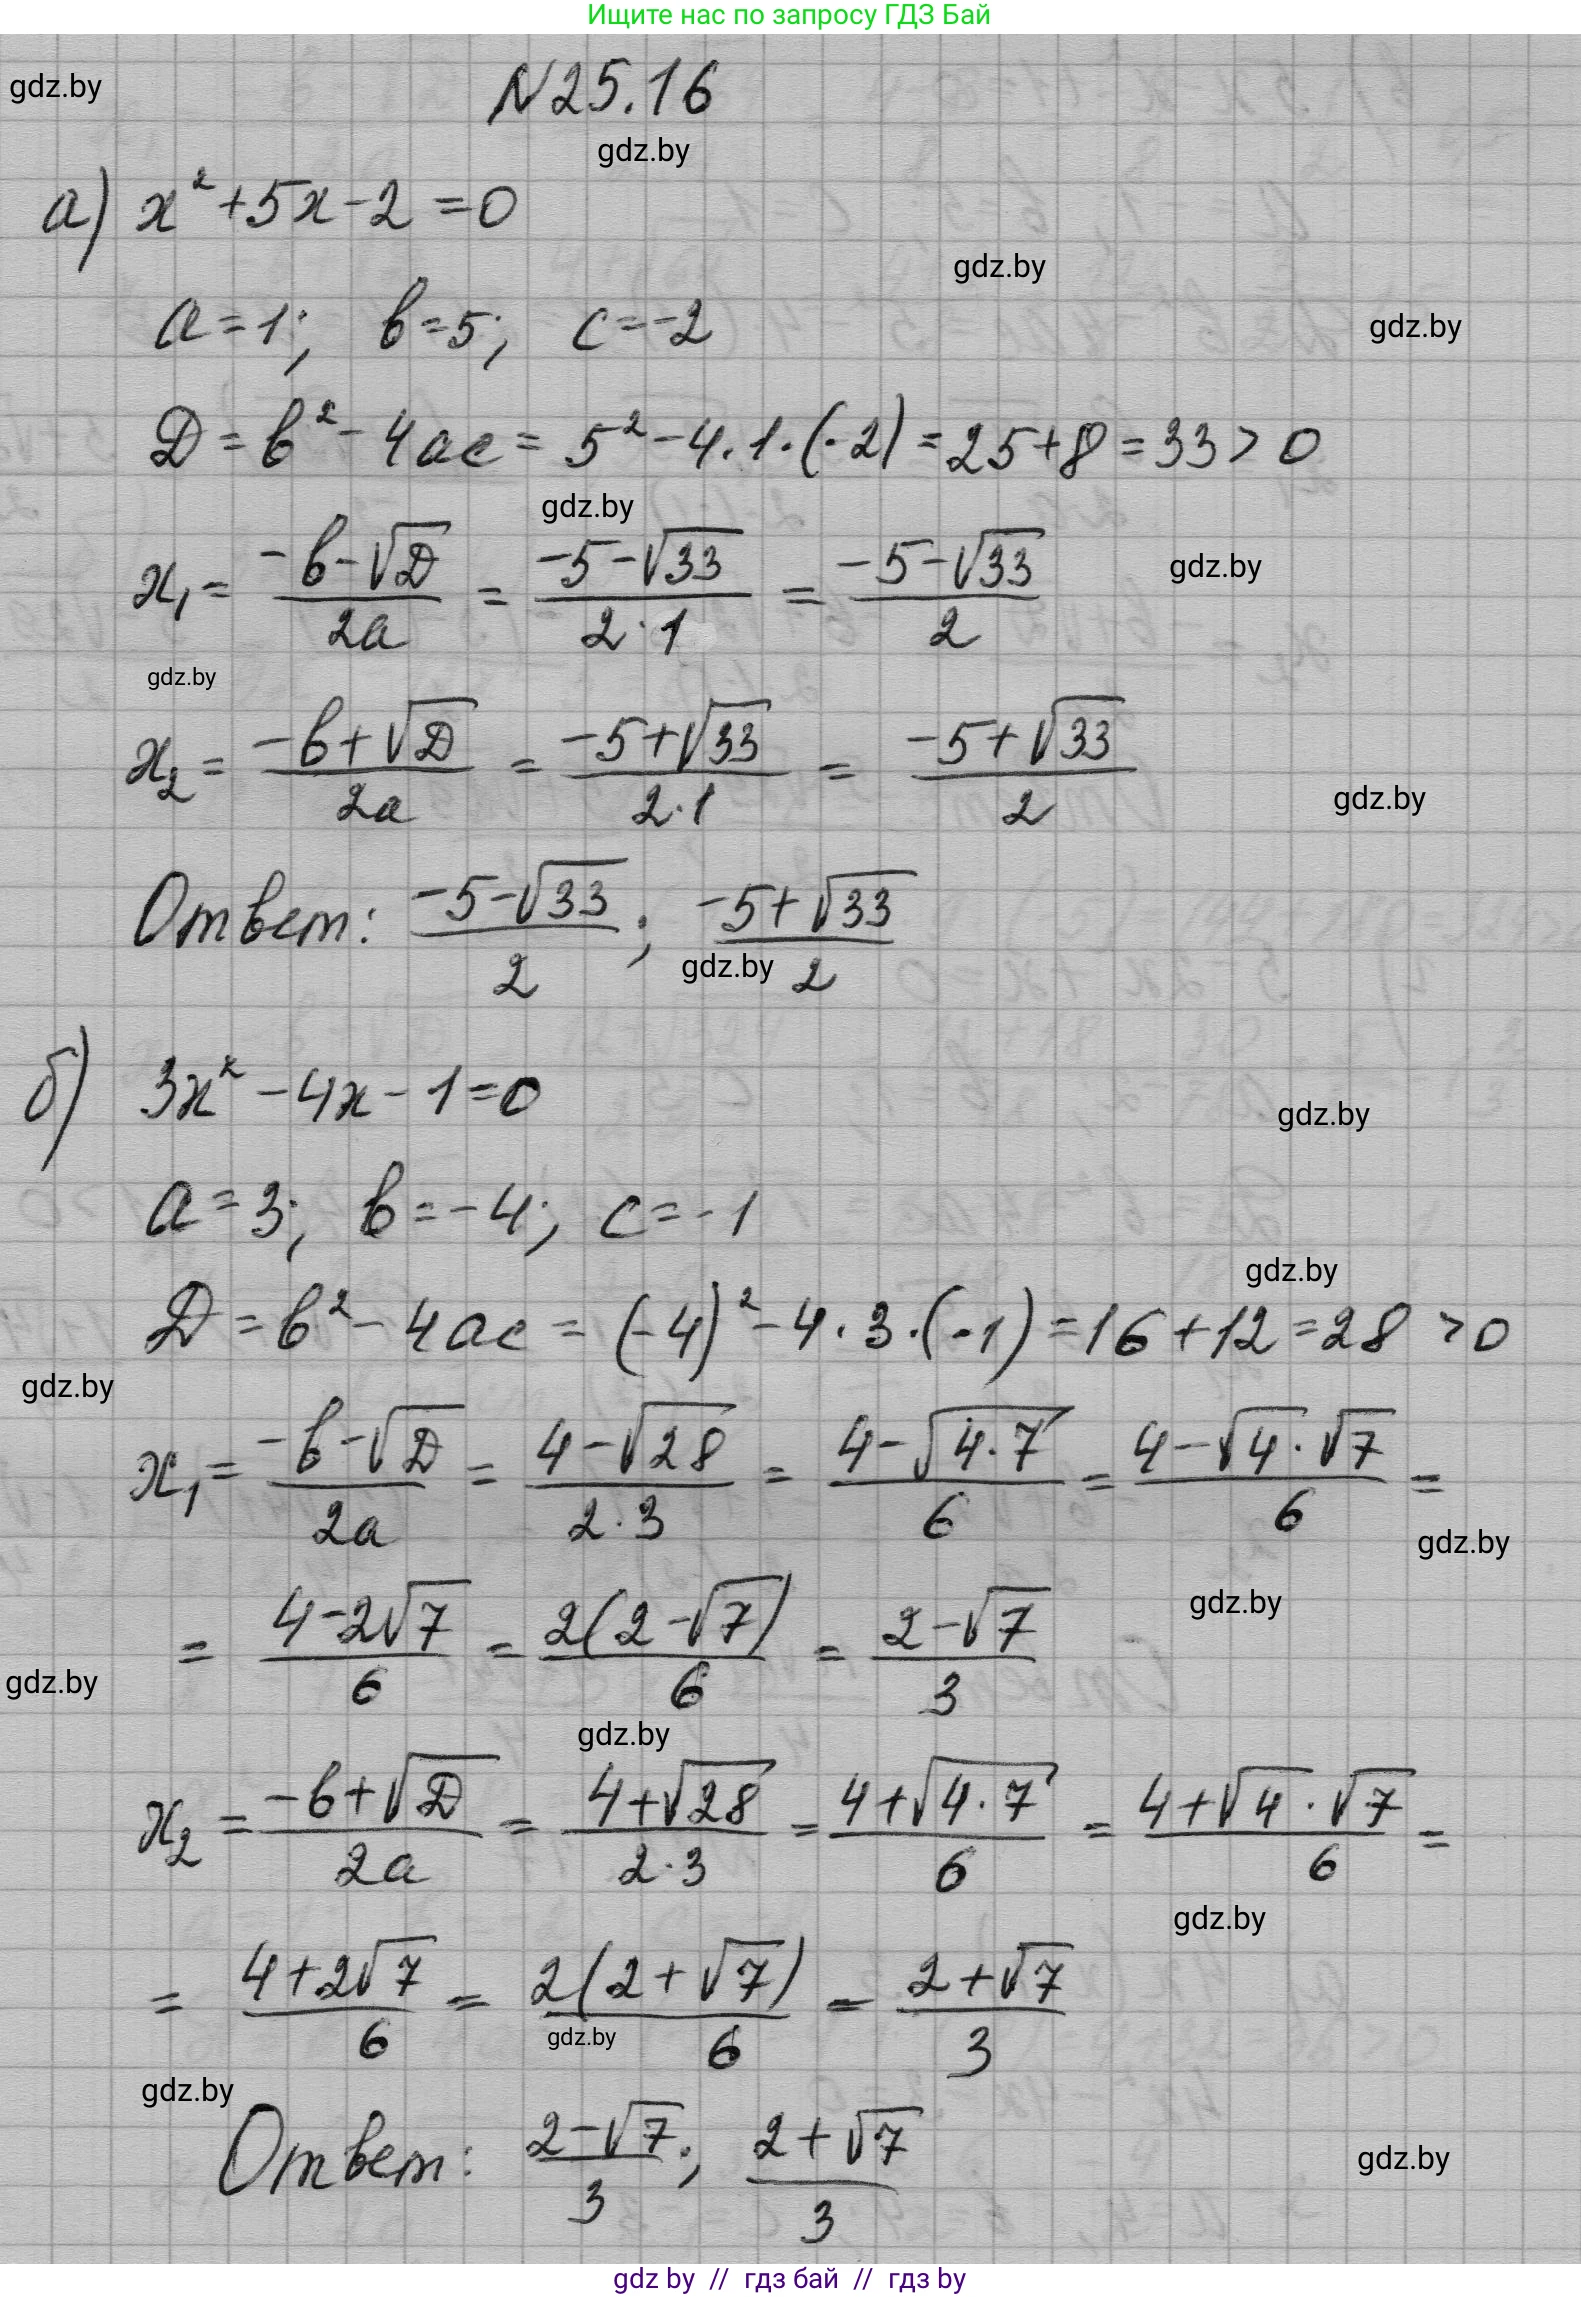 Ищите нас по запросу ГДЗ Бай
gdz.by
N25.16
gdz.by
а) x² +5x-2 =0
gdz.by
a=1; b=5; c=-2
gdz.by
D = b² - 4ac = 5² - 4·1·(-2) = 25+8 = 33 > 0
gdz.by
x₁ = (-b-√D)/2a = (-5-√33)/(2·1) = (-5-√33)/2
gdz.by
gdz.by
x₂ = (-b+√D)/2a = (-5+√33)/(2·1) = (-5+√33)/2
gdz.by
Ответ: (-5-√33)/2; (-5+√33)/2
gdz.by
б) 3x² -4x-1=0
gdz.by
a=3; b=-4; c=-1
gdz.by
D = b² - 4ac = (-4)² - 4·3·(-1) = 16+12 = 28 > 0
gdz.by
x₁ = (-b-√D)/2a = (4-√28)/(2·3) = (4-√(4·7))/6 = (4-√4·√7)/6 =
gdz.by
gdz.by
= (4-2√7)/6 = 2(2-√7)/6 = (2-√7)/3
gdz.by
gdz.by
x₂ = (-b+√D)/2a = (4+√28)/(2·3) = (4+√(4·7))/6 = (4+√4·√7)/6 =
gdz.by
= (4+2√7)/6 = 2(2+√7)/6 = (2+√7)/3
gdz.by
gdz.by
Ответ: (2-√7)/3; (2+√7)/3
gdz.by
gdz by // гдз бай // гдз by